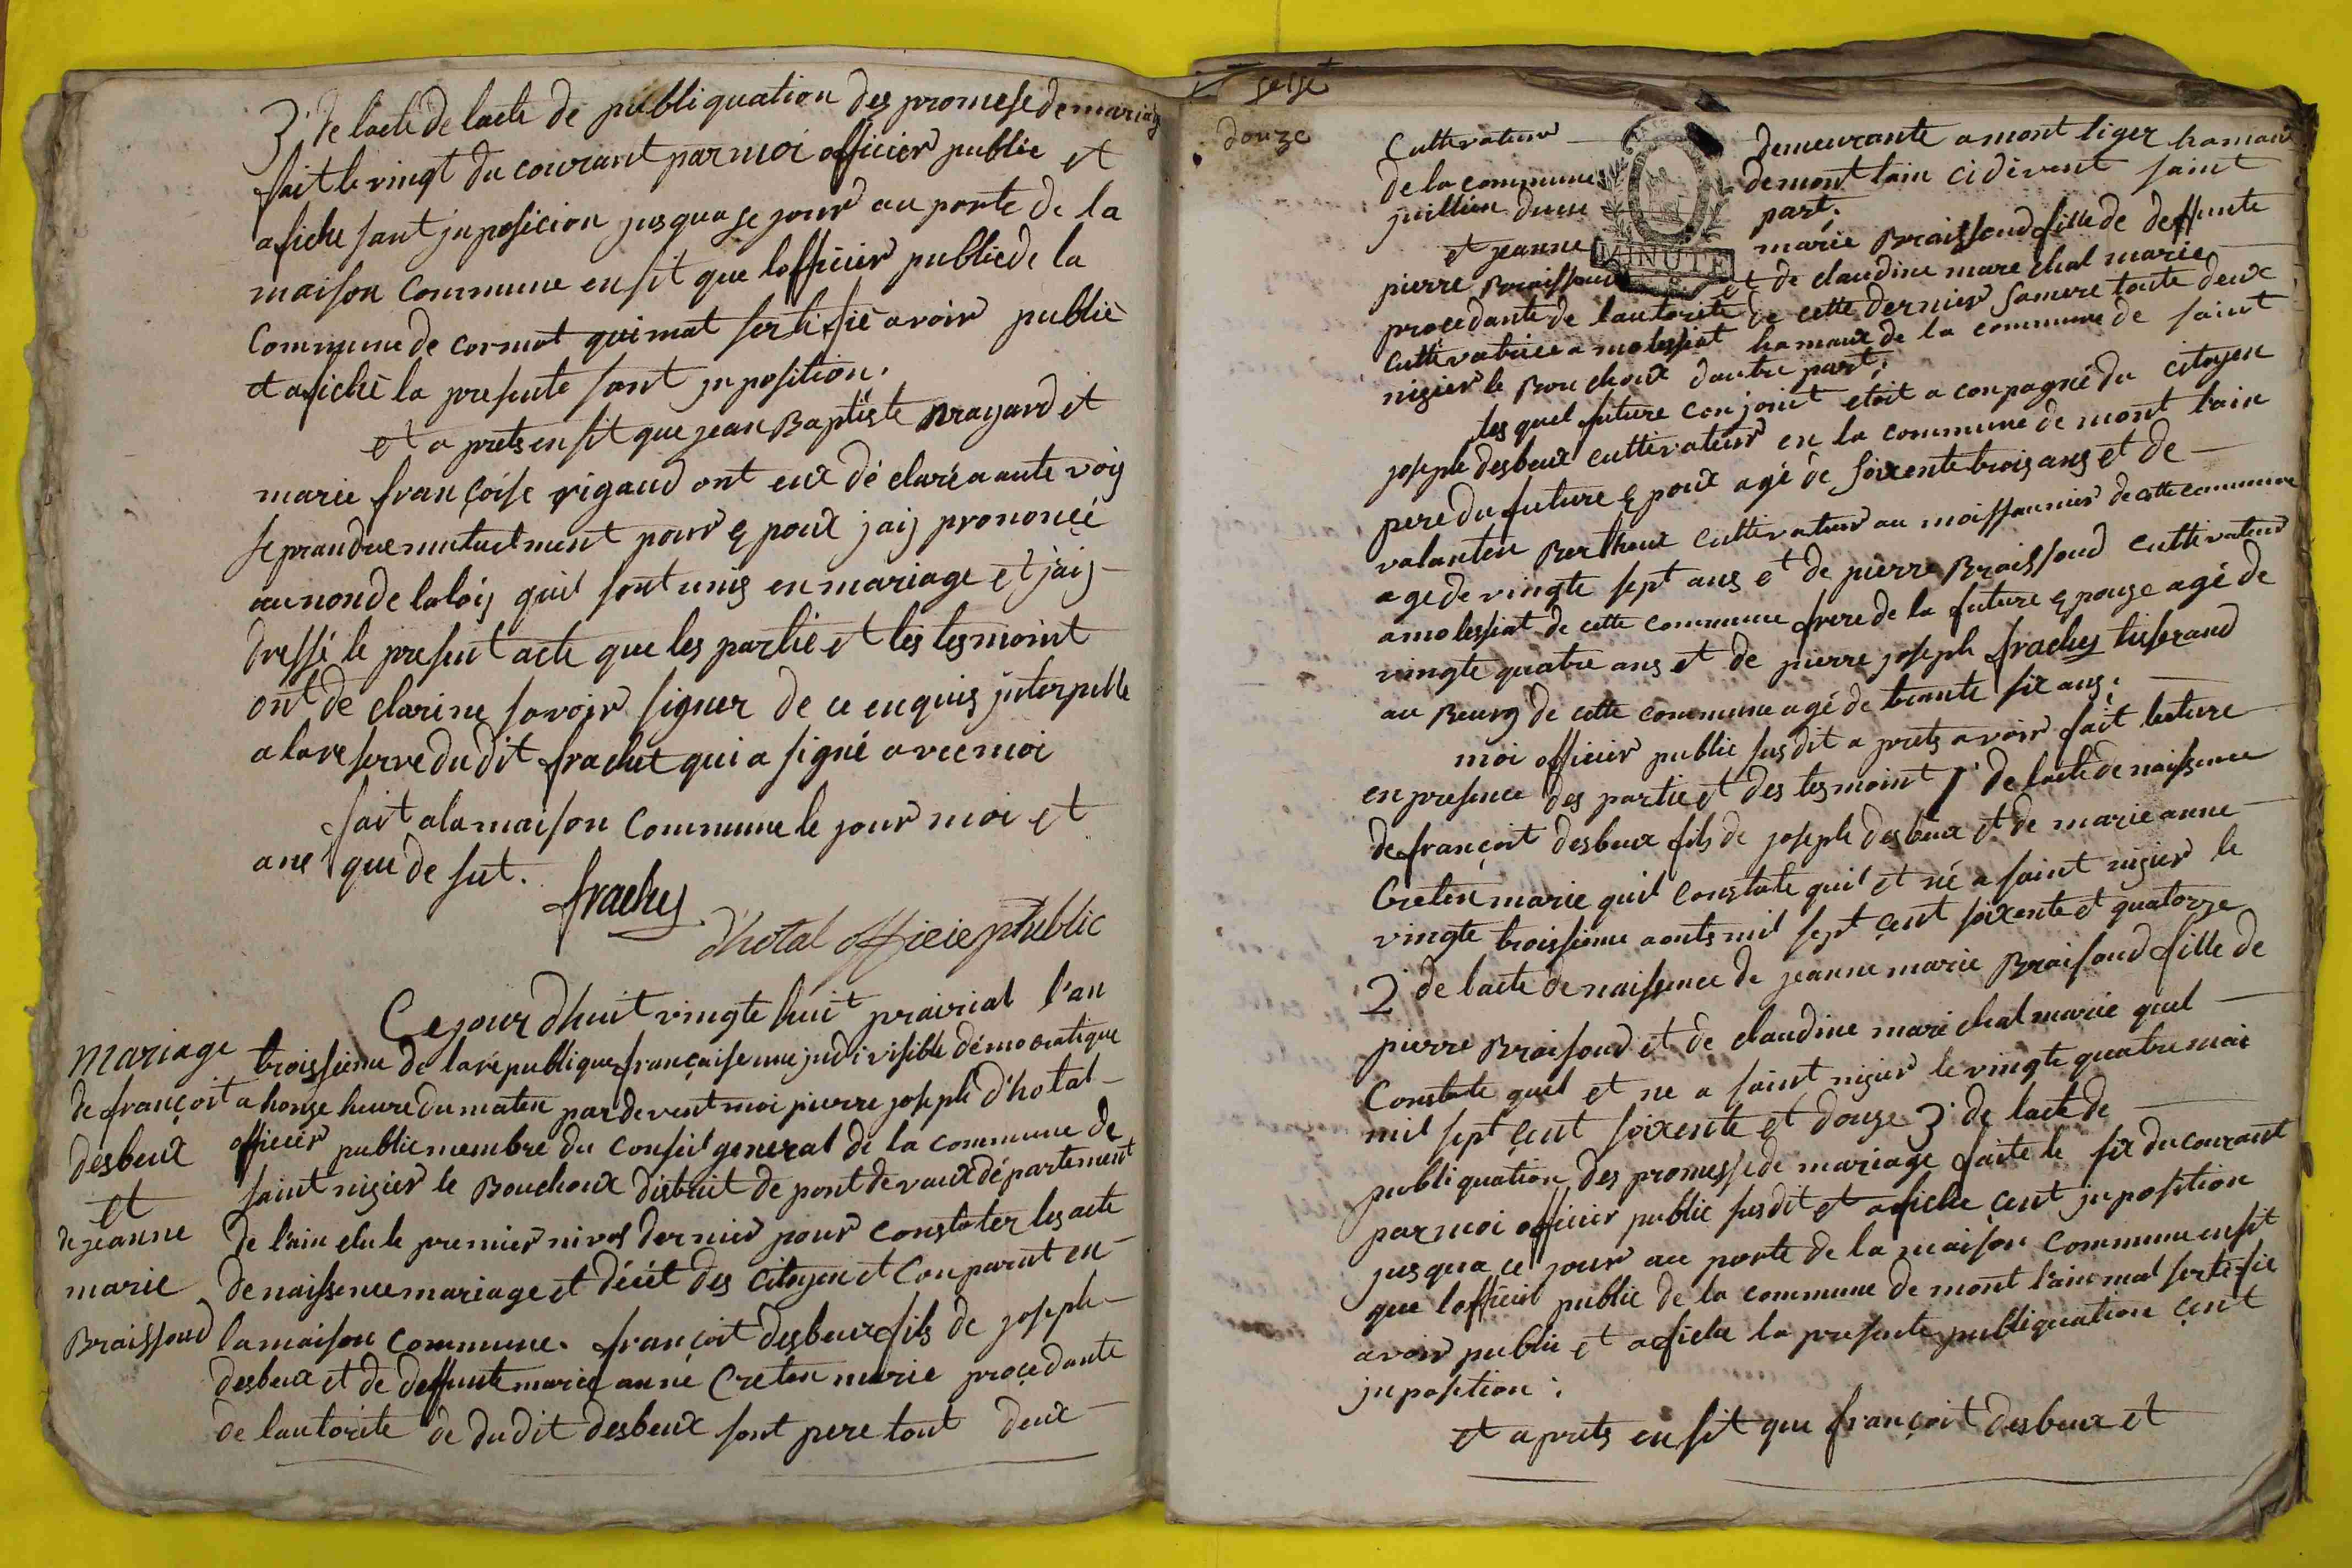 3° de lacte de lacte de publiquation des promese de mariag
fait le vingt du courant par moi officier public et
afiche sant jnposicion jusqua se jour au porte de la
maison commune ensit que lofficier public de la
commune de cormot qui mat sertifié avoir publié
et afiché la presente sant jnposition.
et a prets ensit que jean Baptiste Brayard et
marie françoise rigaud ont eux dé claré a aute vois
se prandre mutuelment pour époux jaij prononcé
au non de la loij quil sont unis en mariage et jaij
dressé le present acte que les partie et les tesmoint
ont de clarine savoir signer de ce enquis jnterpelle
a la reserve du dit frachet qui a signé avec moi
fait a la maison commune le jour moi et
ane que de sut.
frachey
d'hotal officie public
Ce jour dhuit vingte huit prairial l'an
mariage
troissieme de la republique française une jndivisible démocratique
de françoit
a honze heure du maten par devent moi pierre joseph d'hotal
desbeux
officier public membre du conseil general de la commune de
et
saint nisier le Bouchoux distrait de pont de vaux département
de jeanne
de l'ain elu le premier nivos dernier pour constater les acte
marie
de naissence mariage et décét des citoyen et conparut en
Braissoud
la maison commune. françoit desbeux fils de joseph
desbeux et de deffunte marie anne Creten marie proçedante
de lautorite de du dit desbeux sont pere tout deux
seise
douze
Cultivateur demeurante a mont liger hamaux
de la commune de mont lain cidevent saint
juillien dune part.
et jeanne marie Braissoud fille de deffunte
MINUTE
pierre Braissoud et de claudine mare chal marie
proçedante de lautorite de cette dernier samere toute deux
cultivatrice a molessiat hamaux de la commune de saint
nisier le Bouchoux dautre part;
les quel future conjoint etoit a conpagné du citoyen
joseph desbeux cultivateur en la commune de mont l'ain
pere du future époux agé de soixente trois ans et de
valanten Berthoux cultivateur au moissonnier de cette commune
age de vingte sept ans et de pierre Braissoud cultivateur
a molessiat de cette commune frere de la future épouse agé de
vingte quatre ans et de pierre joseph frachey tisserand
au Bourg de cette commune agé de trante six ans;
moi officier public sus dit a prets avoir fait lecture
en presence des partie et des tesmoint 1° de lacte de naissence
de françoit desbeux fils de joseph desbeux et de marie anne
Creten marie quil constate quil et né a saint nisier le
vingte troissieme aouts mil sept çent soixente et quatorze
2° de lacte de naissence de jeanne marie Braisoud fille de
pierre Braisoud et de claudine mari chal marie quel
Constate quel et ne a saint nisier le vingte quatre mai
mil sept çent soixente et douze 3° de lacte de
publiquation des promesse de mariage faite le six du courant
par moi officier public sus dit et afiche cent jnposition
jusqua ce jour au porte de la maison commune ensit
que lofficiel public de la commune de mont l'ain mat sertifie
avoir public et afiche la presente publiquation çent
jnposition;
et a prets en sit que françoit desbeux et